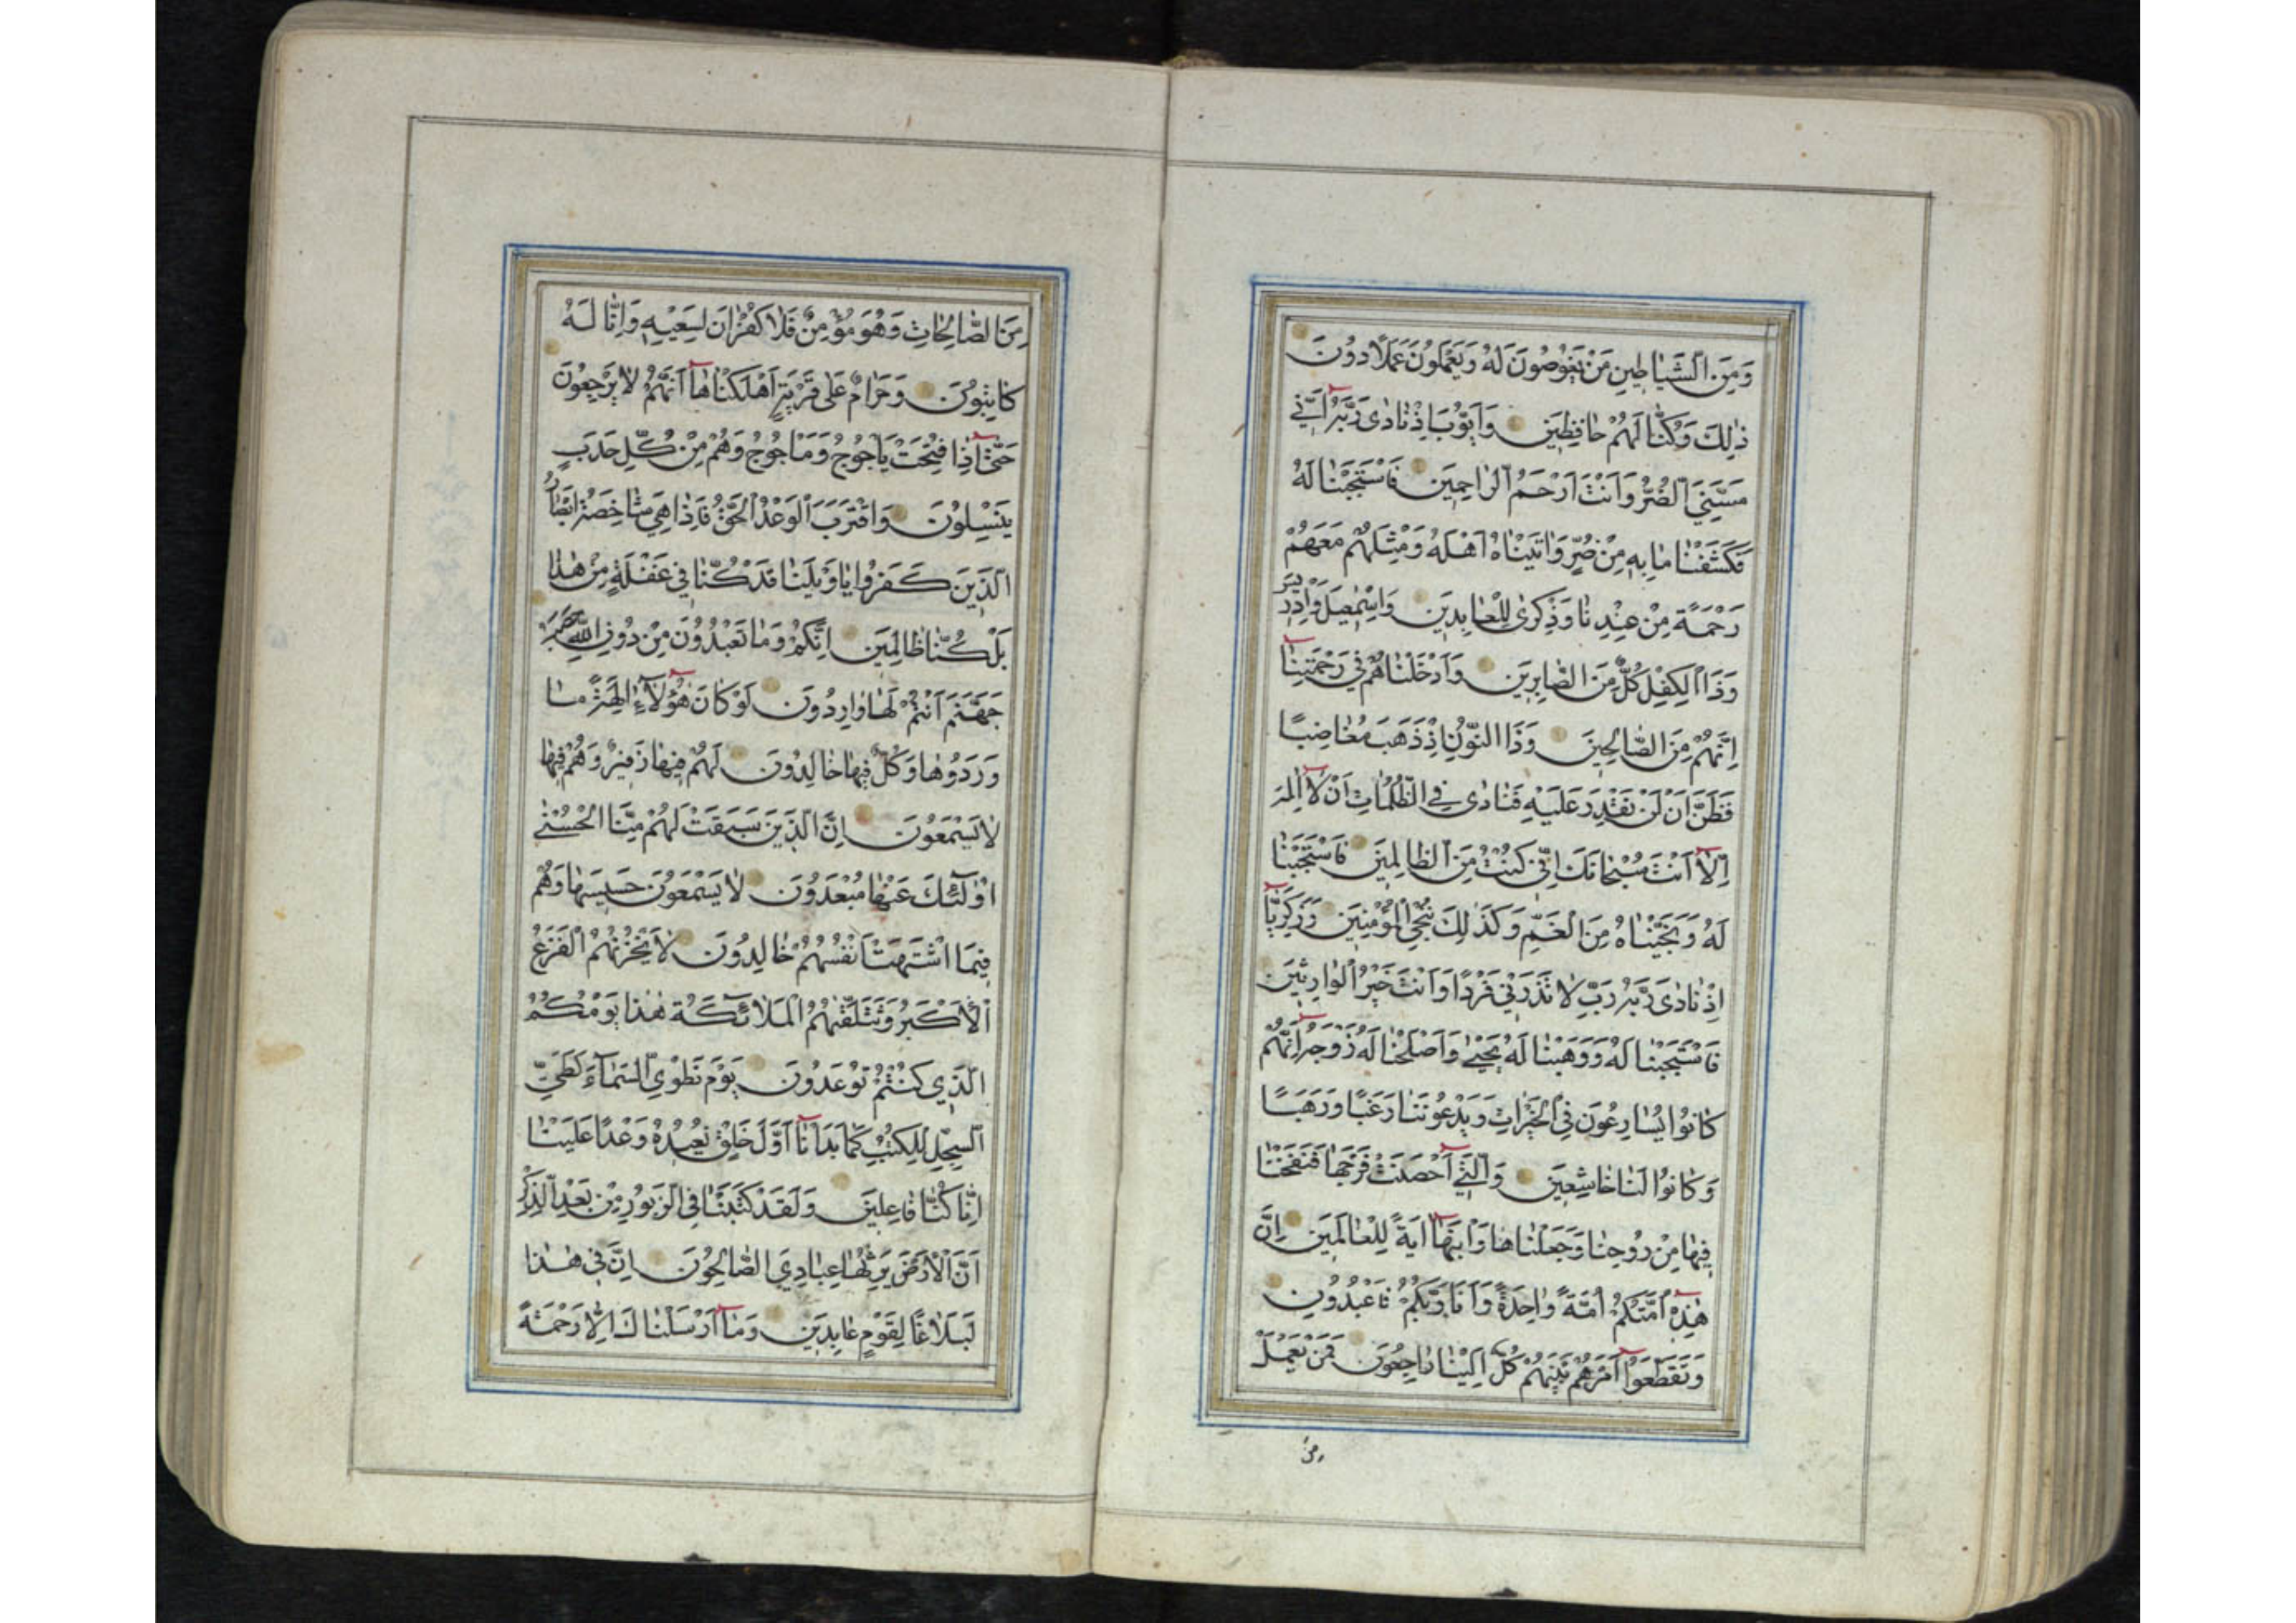 وَمِنَ الشَّيَاطِينِ مَنْ يَغُوصُونَ لَهُ وَيَعْمَلُونَ عَمَلًا دُونَ
ذٰلِكَ وَكُنَّا لَهُمْ حَافِظِينَ وَاَيُّوبَ اِذْ نَادٰى رَبَّهُ اَنِّي
مَسَّنِيَ الضُّرُّ وَاَنْتَ اَرْحَمُ الرَّاحِمِينَ فَاسْتَجَبْنَا لَهُ
فَكَشَفْنَا مَا بِهِ مِنْ ضُرٍّ وَاٰتَيْنَاهُ اَهْلَهُ وَمِثْلَهُمْ مَعَهُمْ
رَحْمَةً مِنْ عِنْدِنَا وَذِكْرٰى لِلْعَابِدِينَ وَاِسْمٰعِيلَ وَاِدْرِيسَ
وَذَا الْكِفْلِ كُلٌّ مِنَ الصَّابِرِينَ وَاَدْخَلْنَاهُمْ فِي رَحْمَتِنَا
اِنَّهُمْ مِنَ الصَّالِحِينَ وَذَا النُّونِ اِذْ ذَهَبَ مُغَاضِبًا
فَظَنَّ اَنْ لَنْ نَقْدِرَ عَلَيْهِ فَنَادٰى فِي الظُّلُمَاتِ اَنْ لَا اِلٰهَ
اِلَّا اَنْتَ سُبْحَانَكَ اِنِّي كُنْتُ مِنَ الظَّالِمِينَ فَاسْتَجَبْنَا
لَهُ وَنَجَّيْنَاهُ مِنَ الْغَمِّ وَكَذٰلِكَ نُنْجِي الْمُؤْمِنِينَ وَزَكَرِيَّا
اِذْ نَادٰى رَبَّهُ رَبِّ لَا تَذَرْنِي فَرْدًا وَاَنْتَ خَيْرُ الْوَارِثِينَ
فَاسْتَجَبْنَا لَهُ وَوَهَبْنَا لَهُ يَحْيٰى وَاَصْلَحْنَا لَهُ زَوْجَهُ اِنَّهُمْ
كَانُوا يُسَارِعُونَ فِي الْخَيْرَاتِ وَيَدْعُونَنَا رَغَبًا وَرَهَبًا
وَكَانُوا لَنَا خَاشِعِينَ وَالَّتِي اَحْصَنَتْ فَرْجَهَا فَنَفَخْنَا
فِيهَا مِنْ رُوحِنَا وَجَعَلْنَاهَا وَابْنَهَا اٰيَةً لِلْعَالَمِينَ اِنَّ
هٰذِهِ اُمَّتُكُمْ اُمَّةً وَاحِدَةً وَاَنَا رَبُّكُمْ فَاعْبُدُونِ
وَتَقَطَّعُوا اَمْرَهُمْ بَيْنَهُمْ كُلٌّ اِلَيْنَا رَاجِعُونَ فَمَنْ يَعْمَلْ
مِنَ
مِنَ الصَّالِحَاتِ وَهُوَ مُؤْمِنٌ فَلَا كُفْرَانَ لِسَعْيِهِ وَاِنَّا لَهُ
كَاتِبُونَ وَحَرَامٌ عَلٰى قَرْيَةٍ اَهْلَكْنَاهَا اَنَّهُمْ لَا يَرْجِعُونَ
حَتّٰى اِذَا فُتِحَتْ يَاْجُوجُ وَمَاْجُوجُ وَهُمْ مِنْ كُلِّ حَدَبٍ
يَنْسِلُونَ وَاقْتَرَبَ الْوَعْدُ الْحَقُّ فَاِذَا هِيَ شَاخِصَةٌ اَبْصَارُ
الَّذِينَ كَفَرُوا يَا وَيْلَنَا قَدْ كُنَّا فِي غَفْلَةٍ مِنْ هٰذَا
بَلْ كُنَّا ظَالِمِينَ اِنَّكُمْ وَمَا تَعْبُدُونَ مِنْ دُونِ اللّٰهِ حَصَبُ
جَهَنَّمَ اَنْتُمْ لَهَا وَارِدُونَ لَوْ كَانَ هٰؤُلَاءِ اٰلِهَةً مَا
وَرَدُوهَا وَكُلٌّ فِيهَا خَالِدُونَ لَهُمْ فِيهَا زَفِيرٌ وَهُمْ فِيهَا
لَا يَسْمَعُونَ اِنَّ الَّذِينَ سَبَقَتْ لَهُمْ مِنَّا الْحُسْنٰى
اُولٰئِكَ عَنْهَا مُبْعَدُونَ لَا يَسْمَعُونَ حَسِيسَهَا وَهُمْ
فِيمَا اشْتَهَتْ اَنْفُسُهُمْ خَالِدُونَ لَا يَحْزُنُهُمُ الْفَزَعُ
الْاَكْبَرُ وَتَتَلَقّٰيهُمُ الْمَلَائِكَةُ هٰذَا يَوْمُكُمُ
الَّذِي كُنْتُمْ تُوعَدُونَ يَوْمَ نَطْوِي السَّمَاءَ كَطَيِّ
السِّجِلِّ لِلْكُتُبِ كَمَا بَدَاْنَا اَوَّلَ خَلْقٍ نُعِيدُهُ وَعْدًا عَلَيْنَا
اِنَّا كُنَّا فَاعِلِينَ وَلَقَدْ كَتَبْنَا فِي الزَّبُورِ مِنْ بَعْدِ الذِّكْرِ
اَنَّ الْاَرْضَ يَرِثُهَا عِبَادِيَ الصَّالِحُونَ اِنَّ فِي هٰذَا
لَبَلَاغًا لِقَوْمٍ عَابِدِينَ وَمَا اَرْسَلْنَاكَ اِلَّا رَحْمَةً